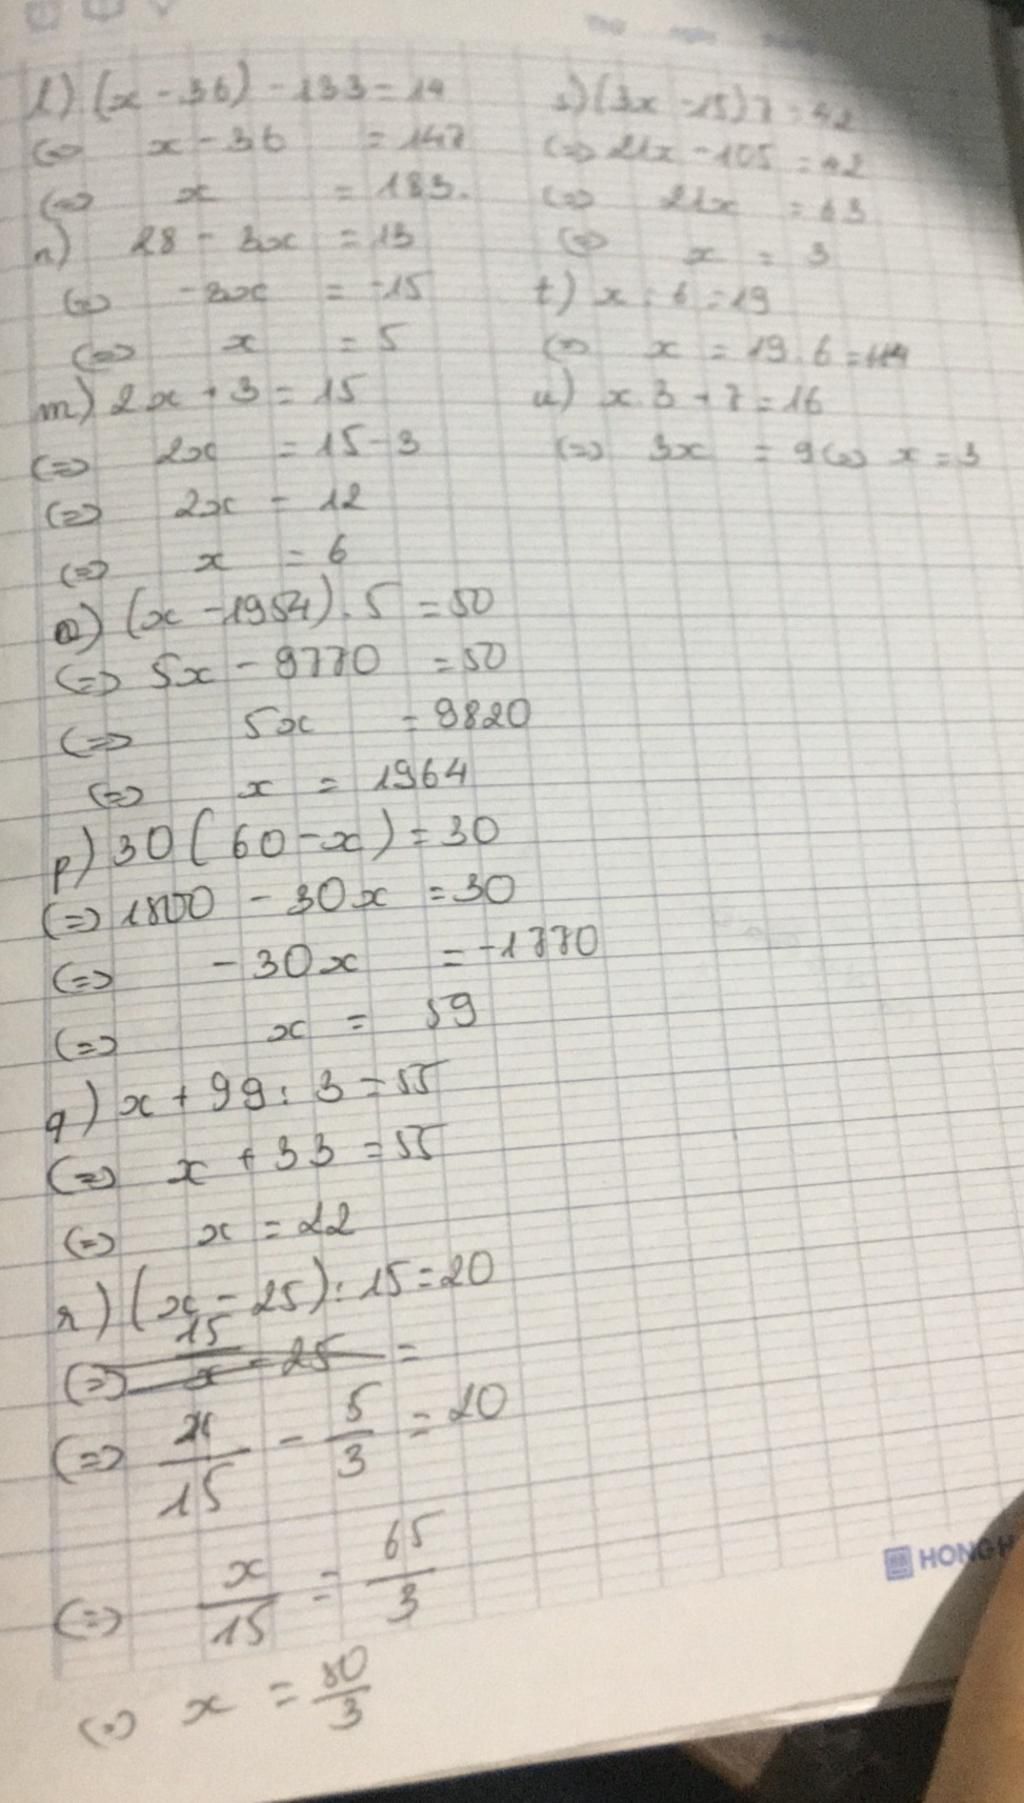 l) (x - 36) - 133 = 14
(=) x - 36 = 147
(=) x = 183.
n) 28 - 3x = 13
(=) -3x = -15
(=) x = 5
m) 2x + 3 = 15
(=) 2x = 15 - 3
(=) 2x = 12
(=) x = 6
o) (x - 1954) . 5 = 50
(=) 5x - 9770 = 50
(=) 5x = 9820
(=) x = 1964
p) 30 ( 60 - x ) = 30
(=) 1800 - 30x = 30
(=) - 30x = - 1770
(=) x = 59
q) x + 99 : 3 = 55
(=) x + 33 = 55
(=) x = 22
r) (x - 25) : 15 = 20
(=) 15/x - 25 =
(=) x/15 - 5/3 = 20
(=) x/15 = 65/3
(=) x = 80/3
s) (3x - 15) 7 = 42
(=) 21x - 105 = 42
(=) 21x = 63
(=) x = 3
t) x : 6 = 19
(=) x = 19 . 6 = 114
u) x . 3 + 7 = 16
(=) 3x = 9 (=) x = 3
HONGH